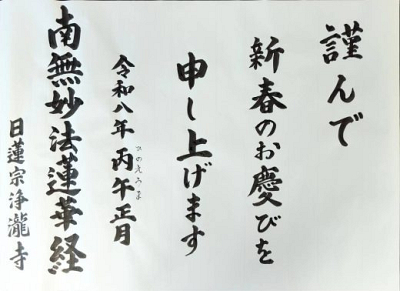 謹んで
新春のお慶びを
申し上げます
令和八年 丙午正月
ひのえうま
南無妙法蓮華経
日蓮宗浄瀧寺